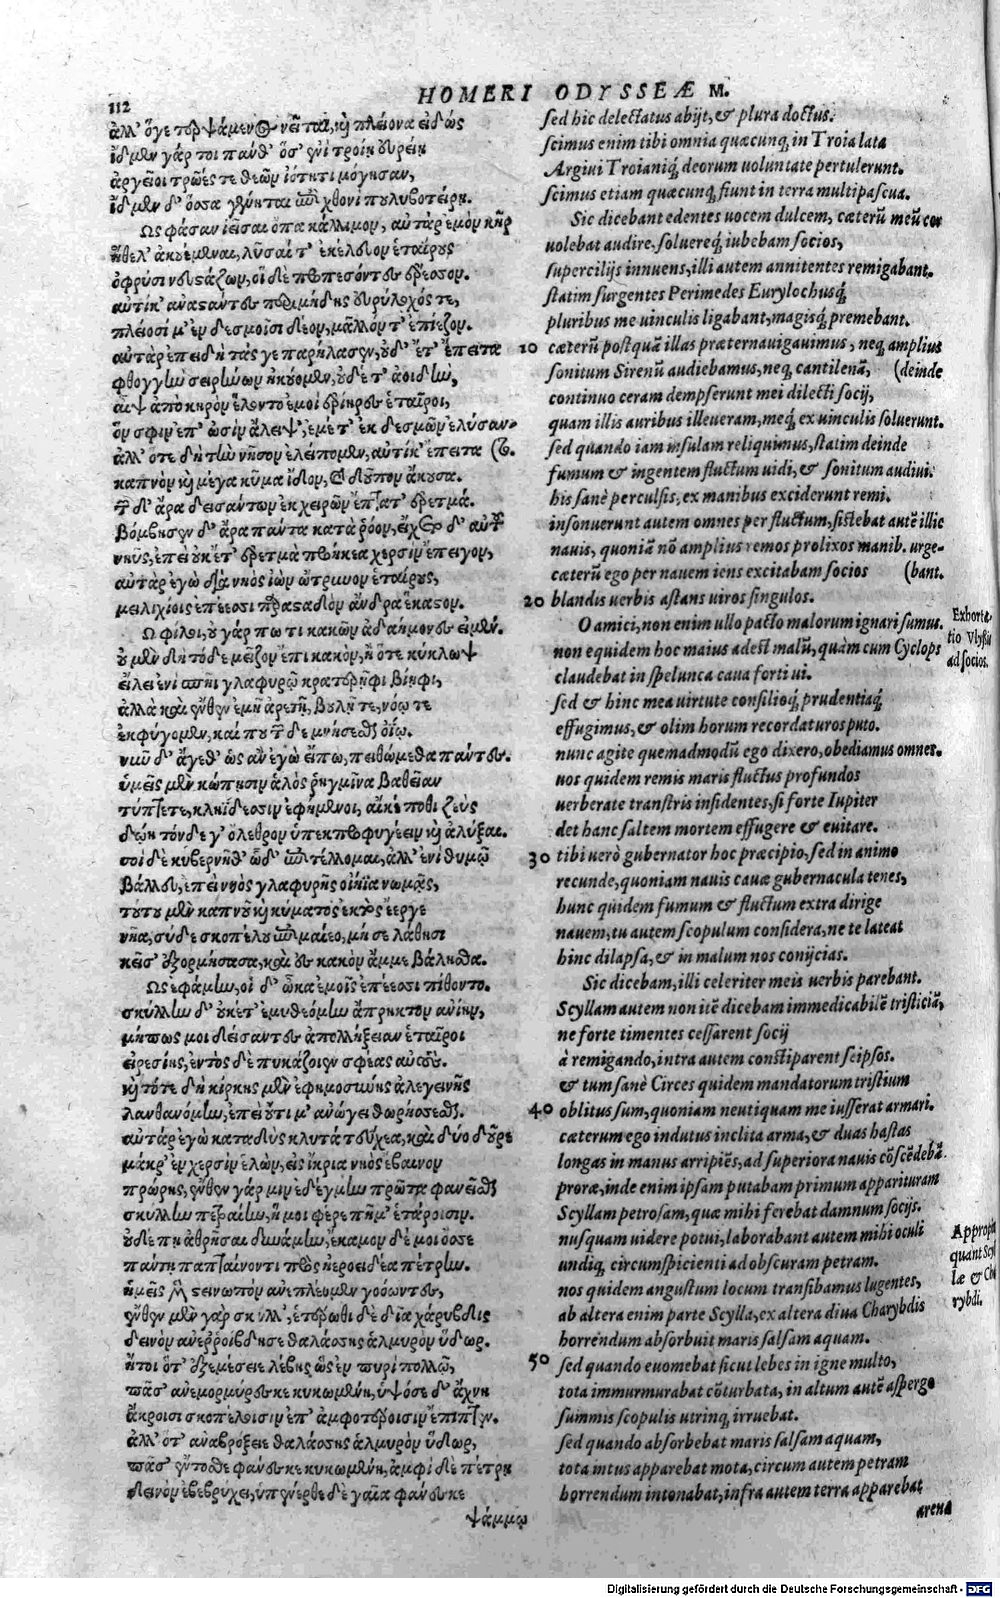 112
HOMERI ODYSSEÆ M.
ἀλλ' ὅγε τερψάμενος νεῖται, καὶ πλείονα εἰδώς
ἴδμεν γάρ τοι πάνθ' ὅσ' ἐνὶ τροίῃ εὐρείῃ
ἀργεῖοι τρῶές τε θεῶν ἰότητι μόγησαν,
ἴδμεν δ' ὅσσα γένηται ἐπὶ χθονὶ πουλυβοτείρῃ.
Ὣς φάσαν ἱεῖσαι ὄπα κάλλιμον, αὐτὰρ ἐμὸν κῆρ
ἤθελ' ἀκουέμεναι, λῦσαί τ' ἐκέλευον ἑταίρους
ὀφρύσι νευστάζων, οἱ δὲ προπεσόντες ἔρεσσον.
αὐτίκ' ἀναστάντες περιμήδης εὐρύλοχός τε,
πλείοσί μ' ἐν δεσμοῖσι δέον, μᾶλλόν τ' ἐπίεζον.
αὐτὰρ ἐπειδὴ τάς γε παρήλασεν, οὐδ' ἔτ' ἔπειτα
φθογγὴν σειρήνων ἠκούομεν, οὐδέ τ' ἀοιδήν,
αἶψ' ἀπὸ κηρὸν ἕλοντο ἐμοὶ ἐρίηρες ἑταῖροι,
ὅν σφιν ἐπ' ὠσὶν ἄλειψ', ἐμέ τ' ἐκ δεσμῶν ἐλύσαν-
ἀλλ' ὅτε δὴ τὴν νῆσον ἐλείπομεν, αὐτίκ' ἔπειτα (το.
καπνὸν καὶ μέγα κῦμα ἴδον, καὶ δοῦπον ἄκουσα.
τῶν δ' ἄρα δεισάντων ἐκ χειρῶν ἔπτατ' ἐρετμά.
βόμβησεν δ' ἄρα πάντα κατὰ ῥόον, ἔσχετο δ' αὐτοῦ
νηῦς, ἐπεὶ οὐκέτ' ἐρετμὰ προήκεα χερσὶν ἔπειγον,
αὐτὰρ ἐγὼ διὰ νηὸς ἰὼν ὤτρυνον ἑταίρους,
μειλιχίοις ἐπέεσσι παρασταδὸν ἄνδρα ἕκαστον.
Ὦ φίλοι, οὐ γάρ πώ τι κακῶν ἀδαήμονες εἰμέν.
οὐ μὲν δὴ τόδε μεῖζον ἔπι κακὸν, ἢ ὅτε κύκλωψ
εἴλει ἐνὶ σπῆι γλαφυρῷ κρατερῆφι βίηφι,
ἀλλὰ καὶ ἔνθεν ἐμῇ ἀρετῇ, βουλῇ τε, νόῳ τε
ἐκφύγομεν, καί που τῶνδε μνήσεσθαι ὀΐω.
νῦν δ' ἄγεθ' ὡς ἂν ἐγὼ εἴπω, πειθώμεθα πάντες.
ὑμεῖς μὲν κώπῃσιν ἁλὸς ῥηγμῖνα βαθεῖαν
τύπτετε, κληΐδεσσιν ἐφήμενοι, αἴ κέ ποθι ζεὺς
δώῃ τόνδε γ' ὄλεθρον ὑπεκπροφυγέειν καὶ ἀλύξαι.
σοὶ δὲ κυβερνῆθ' ὧδ' ἐπιτέλλομαι, ἀλλ' ἐνὶ θυμῷ
βάλλευ, ἐπεὶ νηὸς γλαφυρῆς οἰήϊα νωμᾷς,
τούτου μὲν καπνοῦ καὶ κύματος ἐκτὸς ἔεργε
νῆα, σὺ δὲ σκοπέλου ἐπιμαίεο, μή σε λάθησι
κεῖσ' ἐξορμήσασα, καὶ ἐς κακὸν ἄμμε βάλησθα.
Ὣς ἐφάμην, οἱ δ' ὦκα ἐμοῖς ἐπέεσσι πίθοντο.
σκύλλην δ' οὐκέτ' ἐμυθεόμην ἄπρηκτον ἀνίην,
μήπως μοι δείσαντες ἀπολλήξειαν ἑταῖροι
εἰρεσίης, ἐντὸς δὲ πυκάζοιεν σφέας αὐτούς.
καὶ τότε δὴ κίρκης μὲν ἐφημοσύνης ἀλεγεινῆς
λανθανόμην, ἐπεὶ οὔτι μ' ἀνώγει θωρήσσεσθαι.
αὐτὰρ ἐγὼ καταδὺς κλυτὰ τεύχεα, καὶ δύο δοῦρε
μάκρ' ἐν χερσὶν ἑλών, εἰς ἴκρια νηὸς ἔβαινον
πρώρης, ἔνθεν γάρ μιν ἐδέγμην πρῶτα φανεῖσθαι
σκύλλην πετραίην, ἥ μοι φέρε πῆμ' ἑτάροισιν.
οὐδέ πῃ ἀθρῆσαι δυνάμην, ἔκαμον δέ μοι ὄσσε
πάντῃ παπταίνοντι πρὸς ἠεροειδέα πέτρην.
ἡμεῖς μὲν στεινωπὸν ἀνεπλέομεν γοόωντες,
ἔνθεν μὲν γὰρ σκύλλ', ἑτέρωθι δὲ δῖα χάρυβδις
δεινὸν ἀνερρόιβδησε θαλάσσης ἁλμυρὸν ὕδωρ.
ἤτοι ὅτ' ἐξεμέσειε λέβης ὣς ἐν πυρὶ πολλῷ,
πᾶσ' ἀνεμορμύρεσκε κυκωμένη, ὑψόσε δ' ἄχνη
ἄκροισι σκοπέλοισιν ἐπ' ἀμφοτέροισιν ἔπιπτεν.
ἀλλ' ὅτ' ἀναβρόξειε θαλάσσης ἁλμυρὸν ὕδωρ,
πᾶσ' ἔντοσθε φάνεσκε κυκωμένη, ἀμφὶ δὲ πέτρη
δεινὸν ἐβεβρύχει, ὑπένερθε δὲ γαῖα φάνεσκε
ψάμμῳ
sed hic delectatus abijt, & plura doctus.
scimus enim tibi omnia quæcunq; in Troia lata
Argiui Troianiq; deorum uoluntate pertulerunt.
scimus etiam quæcunq; fiunt in terra multipascua.
Sic dicebant edentes uocem dulcem, cæterū meū cor
uolebat audire. soluereq; iubebam socios,
supercilijs innuens, illi autem annitentes remigabant.
statim surgentes Perimedes Eurylochusq;
pluribus me uinculis ligabant, magisq; premebant.
10 cæterū postquā illas præternauigauimus, neq; amplius
sonitum Sirenū audiebamus, neq; cantilenā, (deinde
continuo ceram dempserunt mei dilecti socij,
quam illis auribus illeueram, meq; ex uinculis soluerunt.
sed quando iam insulam reliquimus, statim deinde
fumum & ingentem fluctum uidi, & sonitum audiui.
his sanè perculsis, ex manibus exciderunt remi.
insonuerunt autem omnes per fluctum, sistebat autē illic
nauis, quoniā nō amplius remos prolixos manib. urge-
cæterū ego per nauem iens excitabam socios (bant.
20 blandis uerbis astans uiros singulos.
O amici, non enim ullo pacto malorum ignari sumus.
non equidem hoc maius adest malū, quàm cum Cyclops
claudebat in spelunca caua forti ui.
sed & hinc mea uirtute consilioq; prudentiaq;
effugimus, & olim horum recordaturos puto.
nunc agite quemadmodū ego dixero, obediamus omnes.
uos quidem remis maris fluctus profundos
uerberate transtris insidentes, si forte Iupiter
det hanc saltem mortem effugere & euitare.
30 tibi uerò gubernator hoc præcipio, sed in animo
recunde, quoniam nauis cauæ gubernacula tenes,
hunc quidem fumum & fluctum extra dirige
nauem, tu autem scopulum considera, ne te lateat
hinc dilapsa, & in malum nos conijcias.
Sic dicebam, illi celeriter meis uerbis parebant.
Scyllam autem non itē dicebam immedicabilē tristiciā,
ne forte timentes cessarent socij
à remigando, intra autem constiparent seipsos.
& tum sanè Circes quidem mandatorum tristium
40 oblitus sum, quoniam neutiquam me iusserat armari.
cæterum ego indutus inclita arma, & duas hastas
longas in manus arripiēs, ad superiora nauis cōscēdebā
proræ, inde enim ipsam putabam primum apparituram
Scyllam petrosam, quæ mihi ferebat damnum socijs.
nusquam uidere potui, laborabant autem mihi oculi
undiq; circumspicienti ad obscuram petram.
nos quidem angustum locum transibamus lugentes,
ab altera enim parte Scylla, ex altera diua Charybdis
horrendum absorbuit maris salsam aquam.
50 sed quando euomebat sicut lebes in igne multo,
tota immurmurabat cōturbata, in altum autē aspergo
summis scopulis utrinq; irruebat.
sed quando absorbebat maris salsam aquam,
tota intus apparebat mota, circum autem petram
horrendum intonabat, infra autem terra apparebat
arena
Exhorta-
tio Vlyssis
ad socios.
Appropin
quant Scyl
læ & Cha
rybdi.
Digitalisierung gefördert durch die Deutsche Forschungsgemeinschaft - DFG